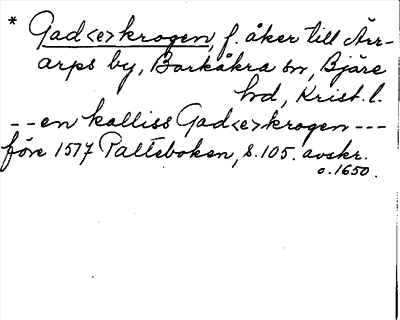 * Gad<e>krogen, f. åker till Ärr-
arps by, Barkåkra sn, Bjäre
hd, Krist. l.
-- en kalliss Gad<e>krogen ---
före 1517 Palteboken, s. 105. avskr.
o. 1650.